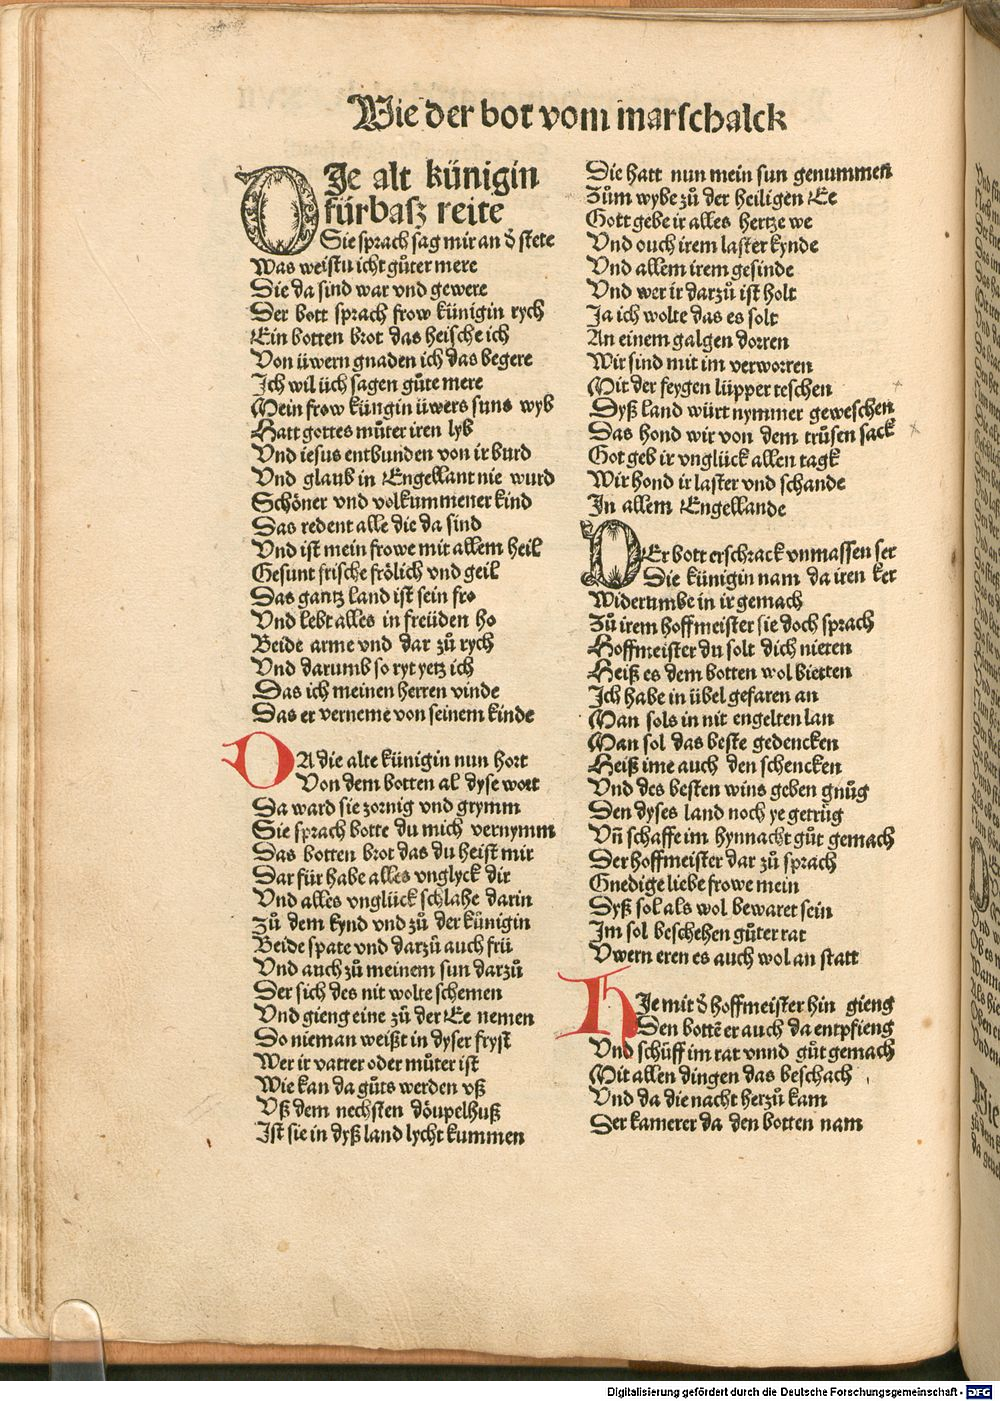 Wie der bot vom marschalck
DJe alt künigin
fürbasz reite
Sie sprach sag mir an d̕ stete
Was weistu icht gůter mere
Die da sind war vnd gewere
Der bott sprach frow künigin rych
Ein botten brot das heische ich
Von üwern gnaden ich das begere
Jch wil üch sagen gůte mere
Mein frow küngin üwers suns wyb
Hatt gottes můter iren lyb
Vnd iesus entbunden von ir burd
Vnd glaub in Engellant nie wurd
Schöner vnd volkummener kind
Das redent alle die da sind
Vnd ist mein frowe mit allem heil
Gesunt frische frölich vnd geil
Das gantz land ist sein fro
Vnd lebt alles in freüden ho
Beide arme vnd dar zů rych
Vnd darumb so ryt yetz ich
Das ich meinen herren vinde
Das er verneme von seinem kinde
DA die alte künigin nun hort
Von dem botten al dyse wort
Da ward sie zornig vnd grymm
Sie sprach botte du mich vernymm
Das botten brot das du heist mir
Dar für habe alles vnglyck dir
Vnd alles vnglück schlahe darin
Zů dem kynd vnd zů der künigin
Beide spate vnd darzů auch frü
Vnd auch zů meinem sun darzů
Der sich des nit wolte schemen
Vnd gieng eine zů der Ee nemen
Do nieman weißt in dyser fryst
Wer ir vatter oder můter ist
Wie kan da gůts werden vß
Vß dem nechsten döupelhuß
Jst sie in dyß land lycht kummen
Die hatt nun mein sun genummen
Zům wybe zů der heiligen Ee
Gott gebe ir alles hertze we
Vnd ouch irem laster kynde
Vnd allem irem gesinde
Vnd wer ir darzů ist holt
Ja ich wolte das es solt
An einem galgen dorren
Wir sind mit im verworren
Mit der feygen lüpper teschen
Dyß land würt nymmer geweschen
Das hond wir von dem trůsen sack
Got geb ir vnglück allen tagk
Wir hond ir laster vnd schande
Jn allem Engellande
DEr bott erschrack vnmassen ser
Die künigin nam da iren ker
Widerumbe in ir gemach
Zů irem hoffmeister sie doch sprach
Hoffmeister du solt dich nieten
Heiß es dem botten wol bietten
Jch habe in übel gefaren an
Man sols in nit engelten lan
Man sol das beste gedencken
Heiß ime auch den schencken
Vnd des besten wins geben gnůg
Den dyses land noch ye getrůg
Vn̄ schaffe im hynnacht gůt gemach
Der hoffmeister dar zů sprach
Gnedige liebe frowe mein
Dyß sol als wol bewaret sein
Jm sol beschehen gůter rat
Vwern eren es auch wol an statt
HJe mit d̕ hoffmeister hin gieng
Den bottē er auch da entpfieng
Vnd schüff im rat vnnd gůt gemach
Mit allen dingen das beschach
Vnd da die nacht herzů kam
Der kamerer da den botten nam
Digitalisierung gefördert durch die Deutsche Forschungsgemeinschaft - DFG